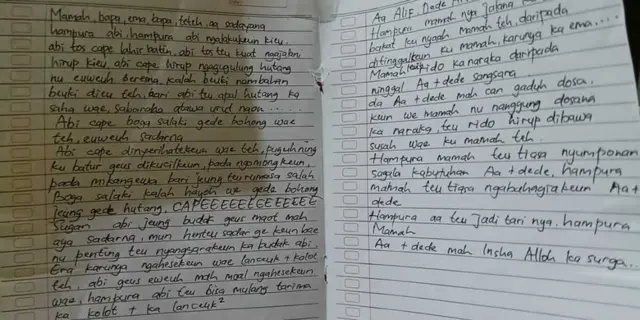 Mamah, bapa, ema, bapa, teteh, aa sadayana
hampura abi hampura abi ngalakukeun kieu.
abi tos cape lahir batin, abi tos teu kuat ngajalani
hirup kieu, abi cape hirup ngagulung hutang
nu euweuh berena, kalah beuki nambahan
beuki dieu teh, bari abi teu apal hutang ka
saha wae, sabaraha atawa urud naon ....
Abi cape boga salaki gede bohong wae
teh, euweuh sadarna
Abi cape dinyerihatekeun wae teh,
ku batur geus dikucilkeun, pada ngomongkeun,
pada mikangewa bari jeung teu rumasa salah
Boga salaki kalah hayoh we gede bohong
jeung gede hutang, CAPEEEEEEEEEEEEEE
Sugan abi jeung budak geus maot mah
aya sadarna, mun henteu sadar ge keun bae
nu penting teu nyangsarakeun ka budak abi
Era karunya ngahesekeun wae lanceuk + kolot
teh, abi geus euweuh mah moal ngahesekeun
wae, hampura abi teu bisa mulang tarima
ka kolot + ka lanceuk²
Aa Alif, Dede
Hampura mamah nya jalana
bakat ku nyaah mamah teh, daripada
ditinggalkeun ku mamah, karunya ka ema....
Mamah rido ka naraka daripada
ninggal Aa + dede sangsara.
da Aa + dede mah can gaduh dosa.
keun we mamah nu nanggung dosana
ka naraka, teu rido hirup dibawa
susah wae ku mamah teh.
Hampura mamah teu tiasa nyumponan
sagala kabutuhan Aa + dede, hampura
mamah teu tiasa ngabahagiakeun Aa +
dede
Hampura aa teu jadi tari nya. hampura
Mamah
Aa + dede mah Insha Alloh ka surga...